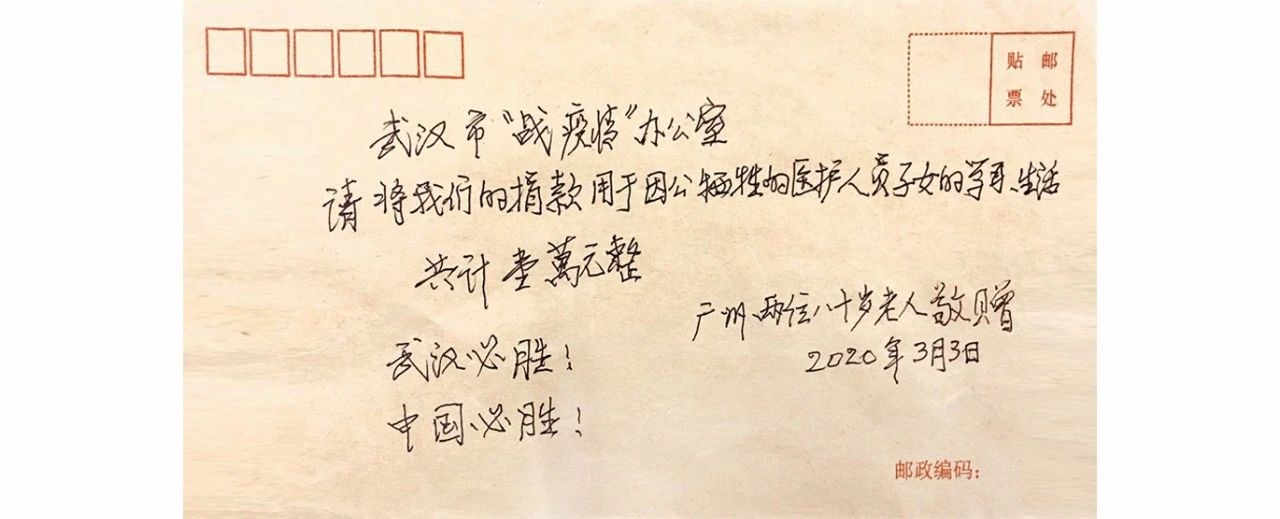 贴 邮
票 处
武汉市“战疫情”办公室
请将我们的捐款用于因公牺牲的医护人员子女的学习、生活
共计壹萬元整
广州两位八十岁老人敬赠
2020年3月3日
武汉必胜！
中国必胜！
邮政编码：